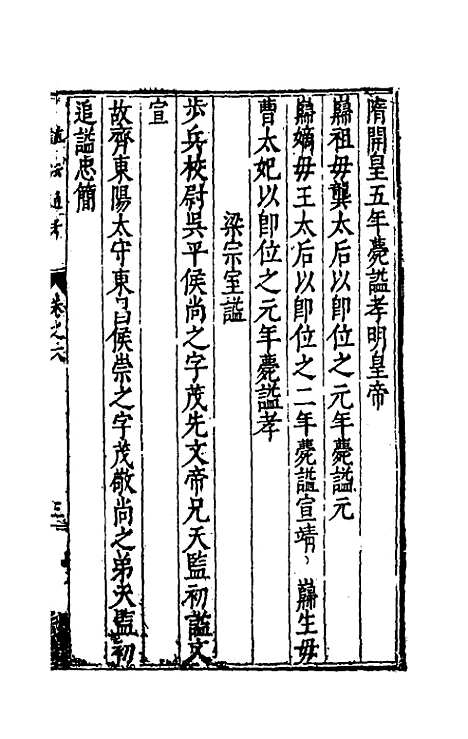 隋開皇五年薨諡孝明皇帝
巋祖毋龔太后以即位之元年薨諡元
巋嫡毋王太后以即位之二年薨諡宣靖丶巋生毋
曹太妃以即位之元年薨諡孝
梁宗室諡
步兵校尉吳平侯尚之字茂先文帝兄天監初諡文
宣
故齊東陽太守東昌侯崇之字茂敬尚之弟天監初
追諡忠簡
諡法通考
卷之六
三